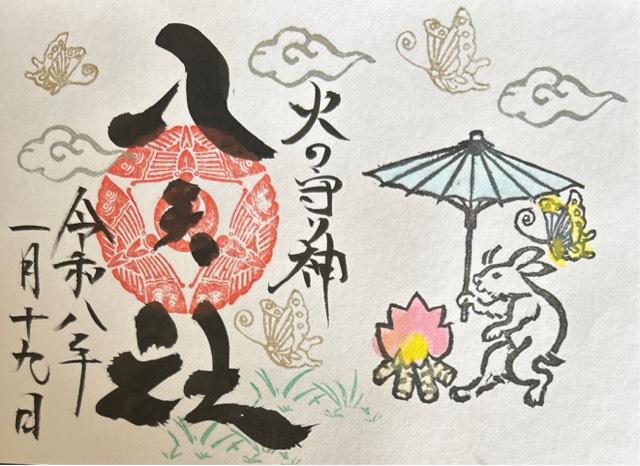 火の守り神
八天社
令和八年
一月十九日